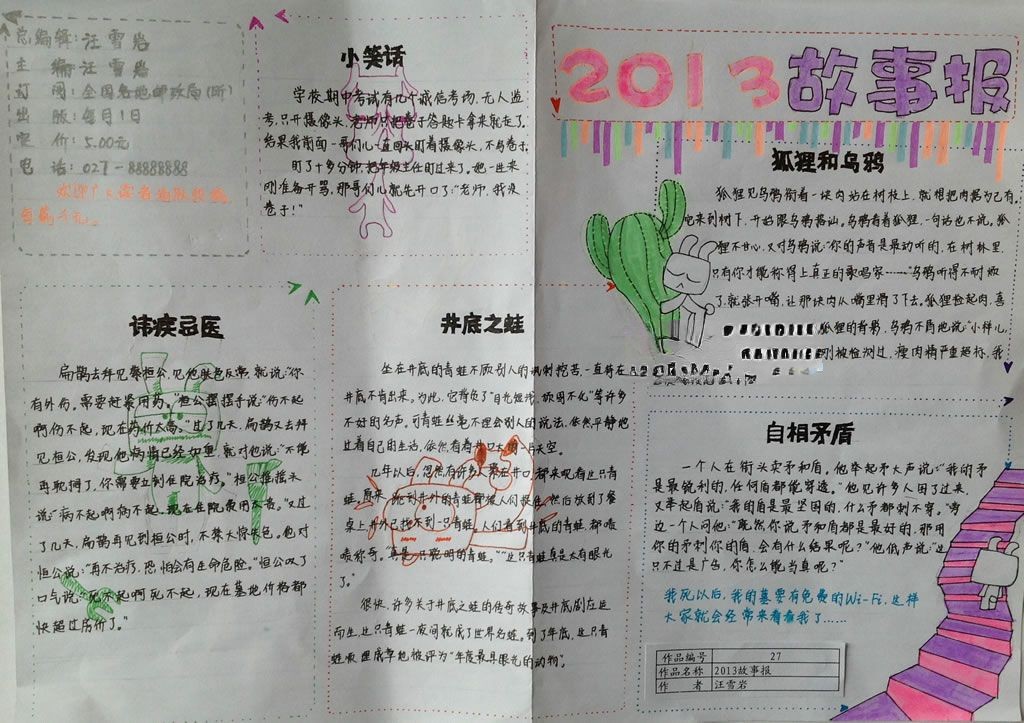 总编辑:汪雪岩
主 编:汪雪岩
订 阅:全国各地邮政局(所)
出 版:每月1日
定 价:5.00元
电 话:027-88888888
欢迎广大读者踊跃投稿
小笑话
学校期中考试有几个诚信考场,无人监
考,只开摄像头,老师只把卷子答题卡拿来就走了。
结果我前面一哥们儿一直回头盯着摄像头,不写卷子,
盯了十多分钟把年级主任盯过来了。他一进来
刚准备开骂,那哥们儿就先开口了:“老师,我没
卷子!”
2013故事报
狐狸和乌鸦
狐狸见乌鸦衔着一块肉站在树枝上,就想把肉据为己有。
它来到树下,开始跟乌鸦搭讪。乌鸦看着狐狸,一句话也不说。狐
狸不甘心,又对乌鸦说:“你的声音是最动听的,在树林里,
只有你才能称得上真正的歌唱家……”乌鸦听得不耐烦
了,就张开嘴,让那块肉从嘴里滑了下去。狐狸捡起肉,喜
狐狸的背影,乌鸦不屑地说:“小样儿,
刚被检测过,瘦肉精严重超标,我
讳疾忌医
扁鹊去拜见蔡桓公,见他肤色反常,就说:“你
有外伤。需要赶紧用药。”桓公摆摆手说:“伤不起
啊伤不起,现在药价太高。”过了几天,扁鹊又去拜
见桓公,发现他病情已经加重,就对他说:“不能
再耽搁了,你需要立刻住院治疗。”桓公摇摇头
说:“病不起啊病不起。现在住院费用太贵。”又过
了几天,扁鹊再见到桓公时,不禁大惊失色。他对
恒公说:“再不治疗,恐怕会有生命危险。”恒公叹了
口气说:“死不起啊死不起,现在墓地价格都
快超过房价了。”
井底之蛙
坐在井底的青蛙不顾别人的讽刺挖苦,一直待在
井底不肯出来。为此,它背负了“目光短浅,顽固不化”等许多
不好的名声,可青蛙丝毫不理会别人的说法,依然平静地
过着自己的生活,依然看着井口大的一片天空。
几年以后,忽然有许多人聚在井口,都来观看这只青
蛙。原来,跳到井外的青蛙都被人们捉住,然后放到了餐
桌上,井外已找不到一只青蛙。人们看到井底的青蛙,都啧
啧称奇。“真是一只聪明的青蛙。”“这只青蛙真是太有眼光
了。”
很快,许多关于井底之蛙的传奇故事及井底剧应运
而生,这只青蛙一夜间就成了世界名蛙。到了年底,这只青
蛙顺理成章地被评为“年度最具眼光的动物”。
自相矛盾
一个人在街头卖矛和盾,他举起矛大声说:“我的矛
是最锐利的,任何盾都能穿透。”他见许多人围了过来,
又举起盾说:“我的盾是最坚固的,什么矛都刺不穿。”旁
边一个人问他:“既然你说矛和盾都是最好的,那用
你的矛刺你的盾,会有什么结果呢?”他低声说:“这
只不过是广告,你怎么能当真呢?”
我死以后,我的墓要有免费的Wi-Fi,这样
大家就会经常来看看我了……
作品编号 27
作品名称 2013故事报
作 者 汪雪岩